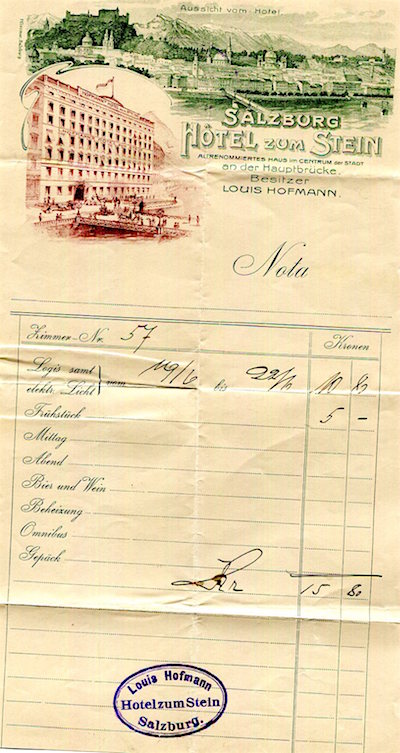 Aussicht vom Hotel.
SALZBURG
HÔTEL ZUM STEIN
ALTRENOMMIERTES HAUS IM CENTRUM DER STADT
an der Hauptbrücke.
Besitzer
LOUIS HOFMANN.
Nota
Zimmer-Nr. 57 Kronen
Logis samt elektr. Licht vom 19/6 bis 22/6 10 80
Frühstück 5 -
Mittag
Abend
Bier und Wein
Beheizung
Omnibus
Gepäck
Kr 15 80
Louis Hofmann
Hotel zum Stein
Salzburg.